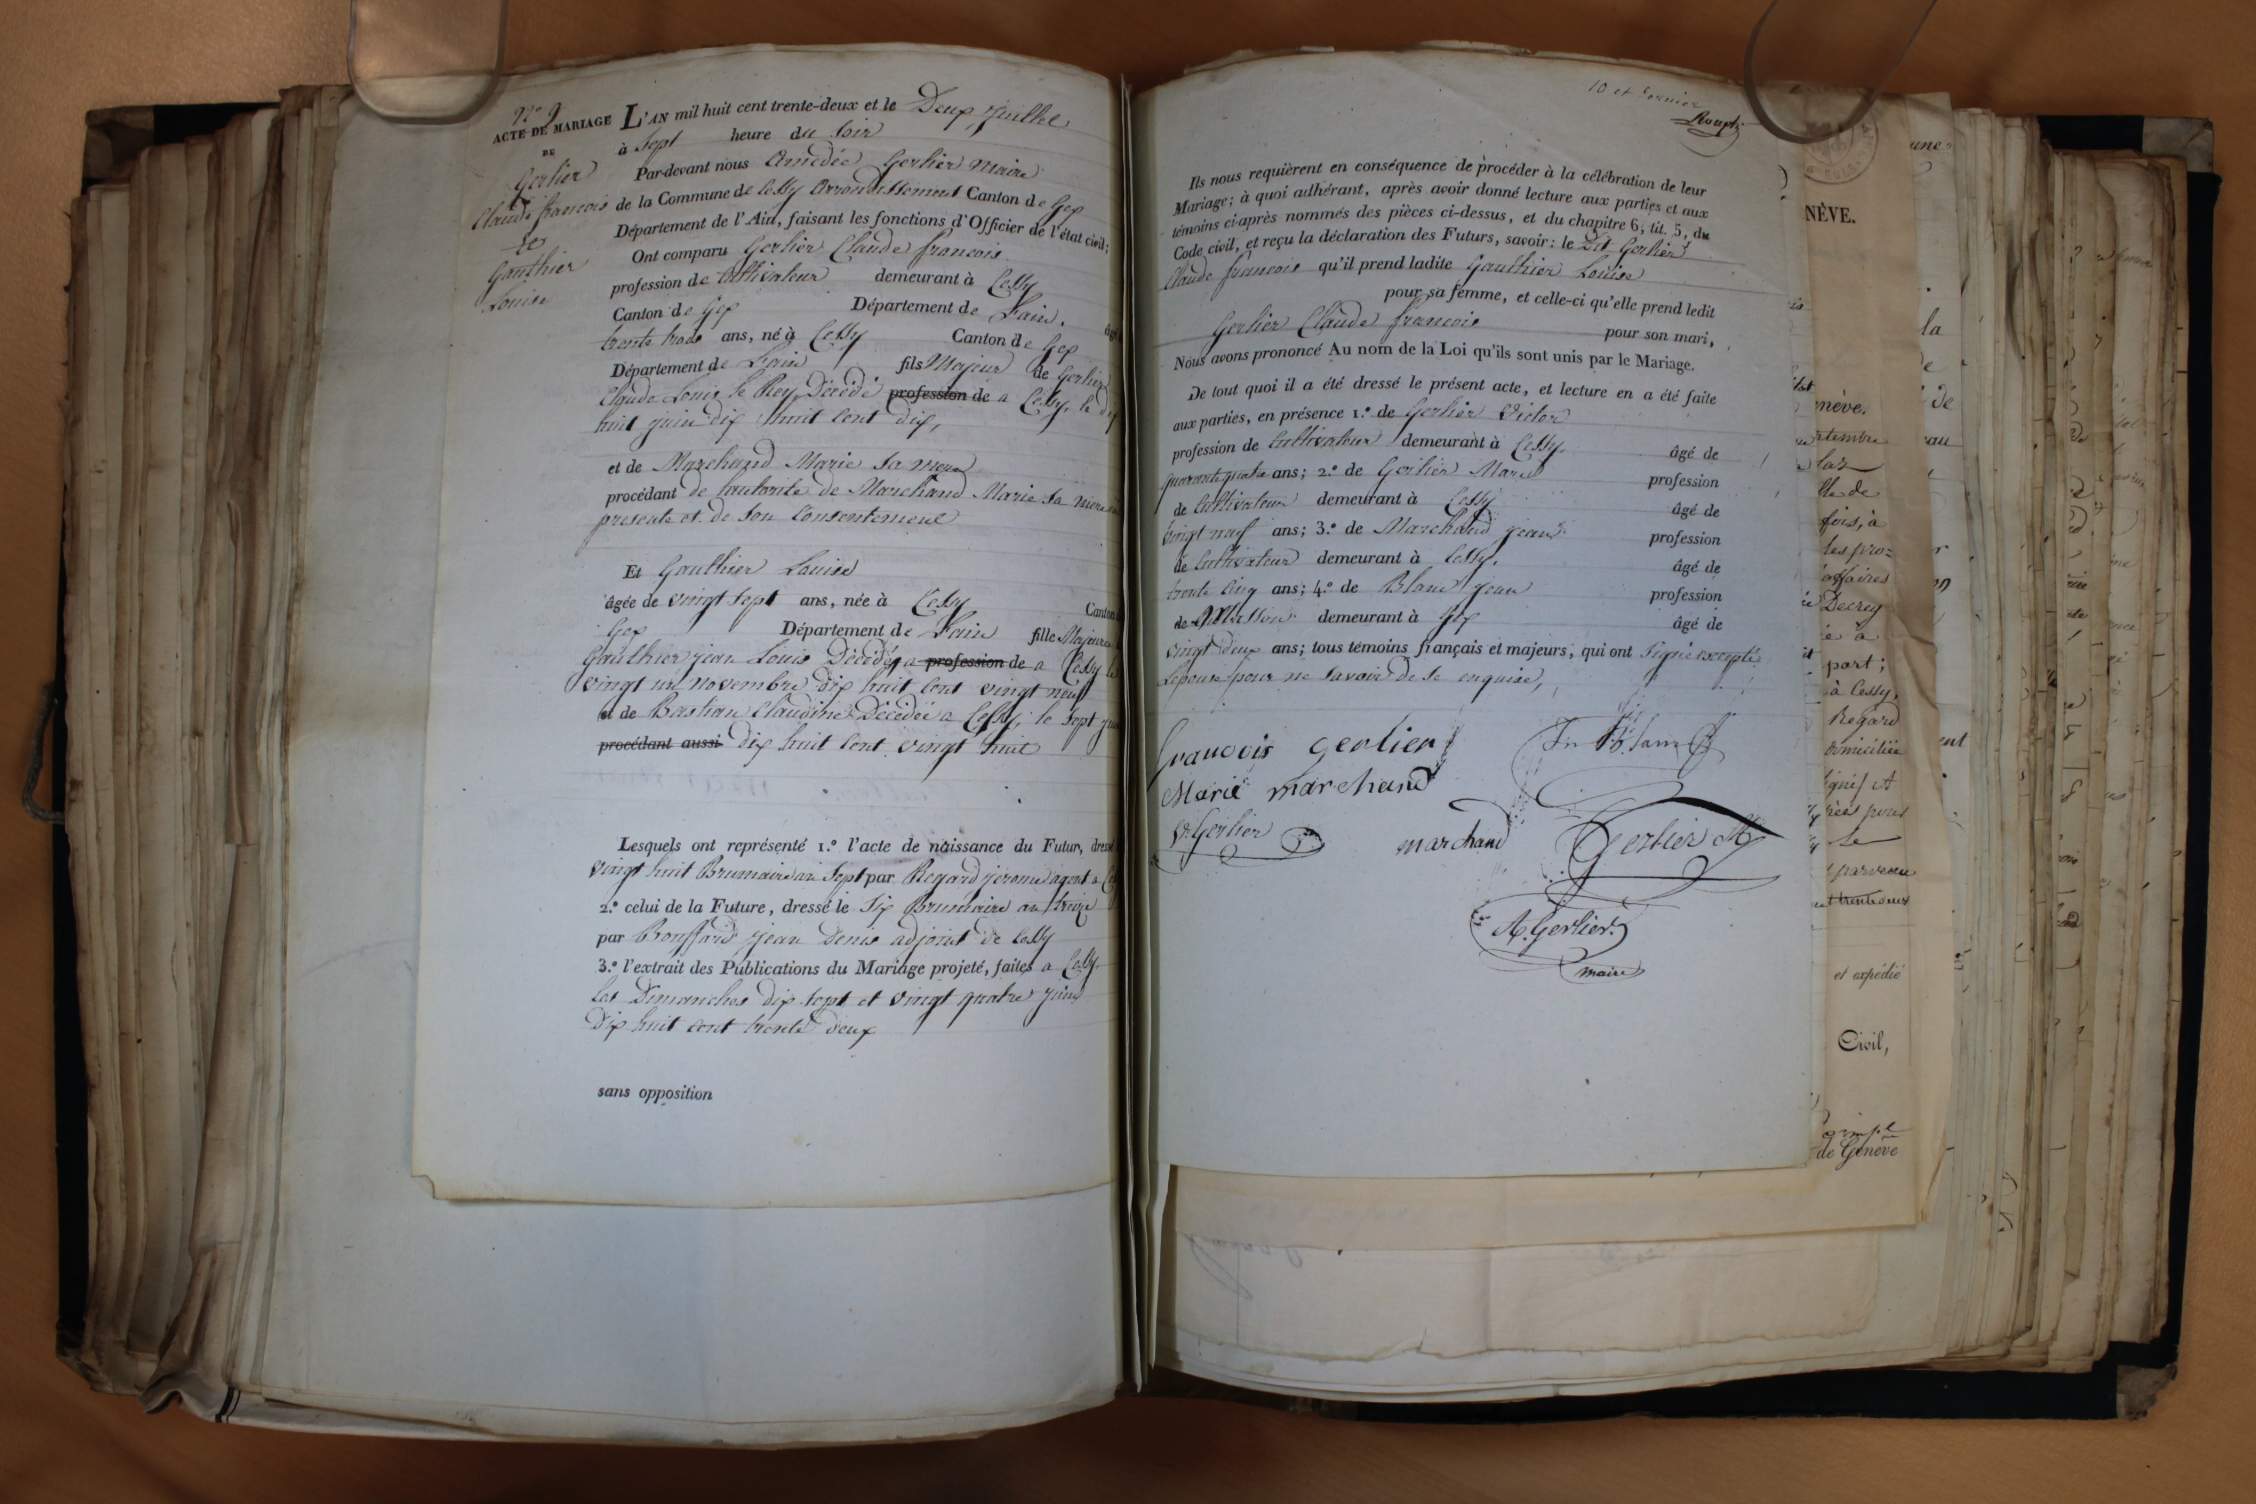 N° 9
ACTE DE MARIAGE
DE
Gerlier
Claude francois
et
Gauthier
Louise
L'AN mil huit cent trente-deux et le Deux juillet
à Sept heure du Soir
Par-devant nous Amédée Gerlier Maire
de la Commune de Cessy arrondissement Canton de Gex
Département de l'Ain, faisant les fonctions d'Officier de l'état civil;
Ont comparu Gerlier Claude francois
profession de Cultivateur demeurant à Cessy
Canton de Gex Département de Lain. âgé
trente trois ans, né à Cessy Canton de Gex
Département de Lain fils Majeur de Gerlier
Claude Louis le Rey Décédé profession de a Cessy, le dix
huit juin dix huit cent dix,
et de Marchand Marie Sa mere
procédant de lautorite de Marchand Marie Sa mere
presente et de Son Consentement
Et Gauthier Louise
âgée de vingt Sept ans, née à Cessy Canton
Gex Département de Lain fille Majeure
Gauthier jean Louis Décédé a profession de a Cessy le
vingt un Novembre dix huit cent vingt neuf
et de Bastian Claudine Décédée a Cessy, le Sept
procédant aussi dix huit cent vingt huit
Lesquels ont représenté 1.° l'acte de naissance du Futur, dressé
vingt huit Brumaire an Sept par Regard jerome agent a
2.° celui de la Future, dressé le Six Brumaire an treize
par Bouffard jean Denis adjoint de Cessy
3.° l'extrait des Publications du Mariage projeté, faites a Cessy.
les Dimanches dix Sept et vingt quatre juin
Dix huit cent trente deux
sans opposition
10 et dernier
Ils nous requièrent en conséquence de procéder à la célébration de leur
Mariage; à quoi adhérant, après avoir donné lecture aux parties et aux
témoins ci-après nommés des pièces ci-dessus, et du chapitre 6, tit. 5, du
Code civil, et reçu la déclaration des Futurs, savoir: le Dit Gerlier
Claude francois qu'il prend ladite Gauthier Louise
pour sa femme, et celle-ci qu'elle prend ledit
Gerlier Claude francois pour son mari,
Nous avons prononcé Au nom de la Loi qu'ils sont unis par le Mariage.
De tout quoi il a été dressé le présent acte, et lecture en a été faite
aux parties, en présence 1.° de Gerlier Victor
profession de Cultivateur demeurant à Cessy. âgé de
quarante quatre ans; 2.° de Gerlier Marc profession
de Cultivateur demeurant à Cessy âgé de
vingt neuf ans; 3.° de Marchand jean profession
de Cultivateur demeurant à Cessy. âgé de
trente cinq ans; 4.° de Blanc jean profession
de Masson demeurant à Gex âgé de
vingt deux ans; tous témoins français et majeurs, qui ont Signé excepté
Lepouse pour ne Savoir De Se enquise,
francois gerlier
Marie marchand
Vr. Gerlier
marchand
Gerlier Mc
A. Gerlier.
maire
NÈVE.
nève.
et expédié
Civil,
de Genève